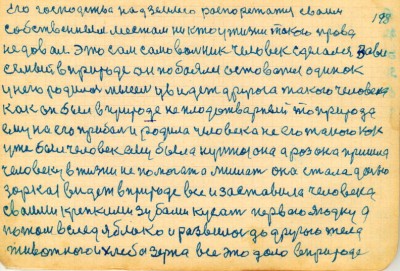 его господства над землею распоряжатся своим 198
собственным местам никто у жизни такого права
не давал это сам самовольник человек сделался завы
семый в природе он побоялся остоватся одинок
у него родилась мысель увидет друга такого человека
как он был в природе не плодотварный то природа
ему на его прибав и родила человека не его такою как
уже был человек ему была нужна она а раз она пришла
человеку в жизни не помогат а мишат она стала дально
зоркая видет в природе все и заставила человека
своими крепкими зубами кусат первою ягодку а
потом вслед яблоко и развилос до другого тела
животного и хлеба зерна все это дало в природе